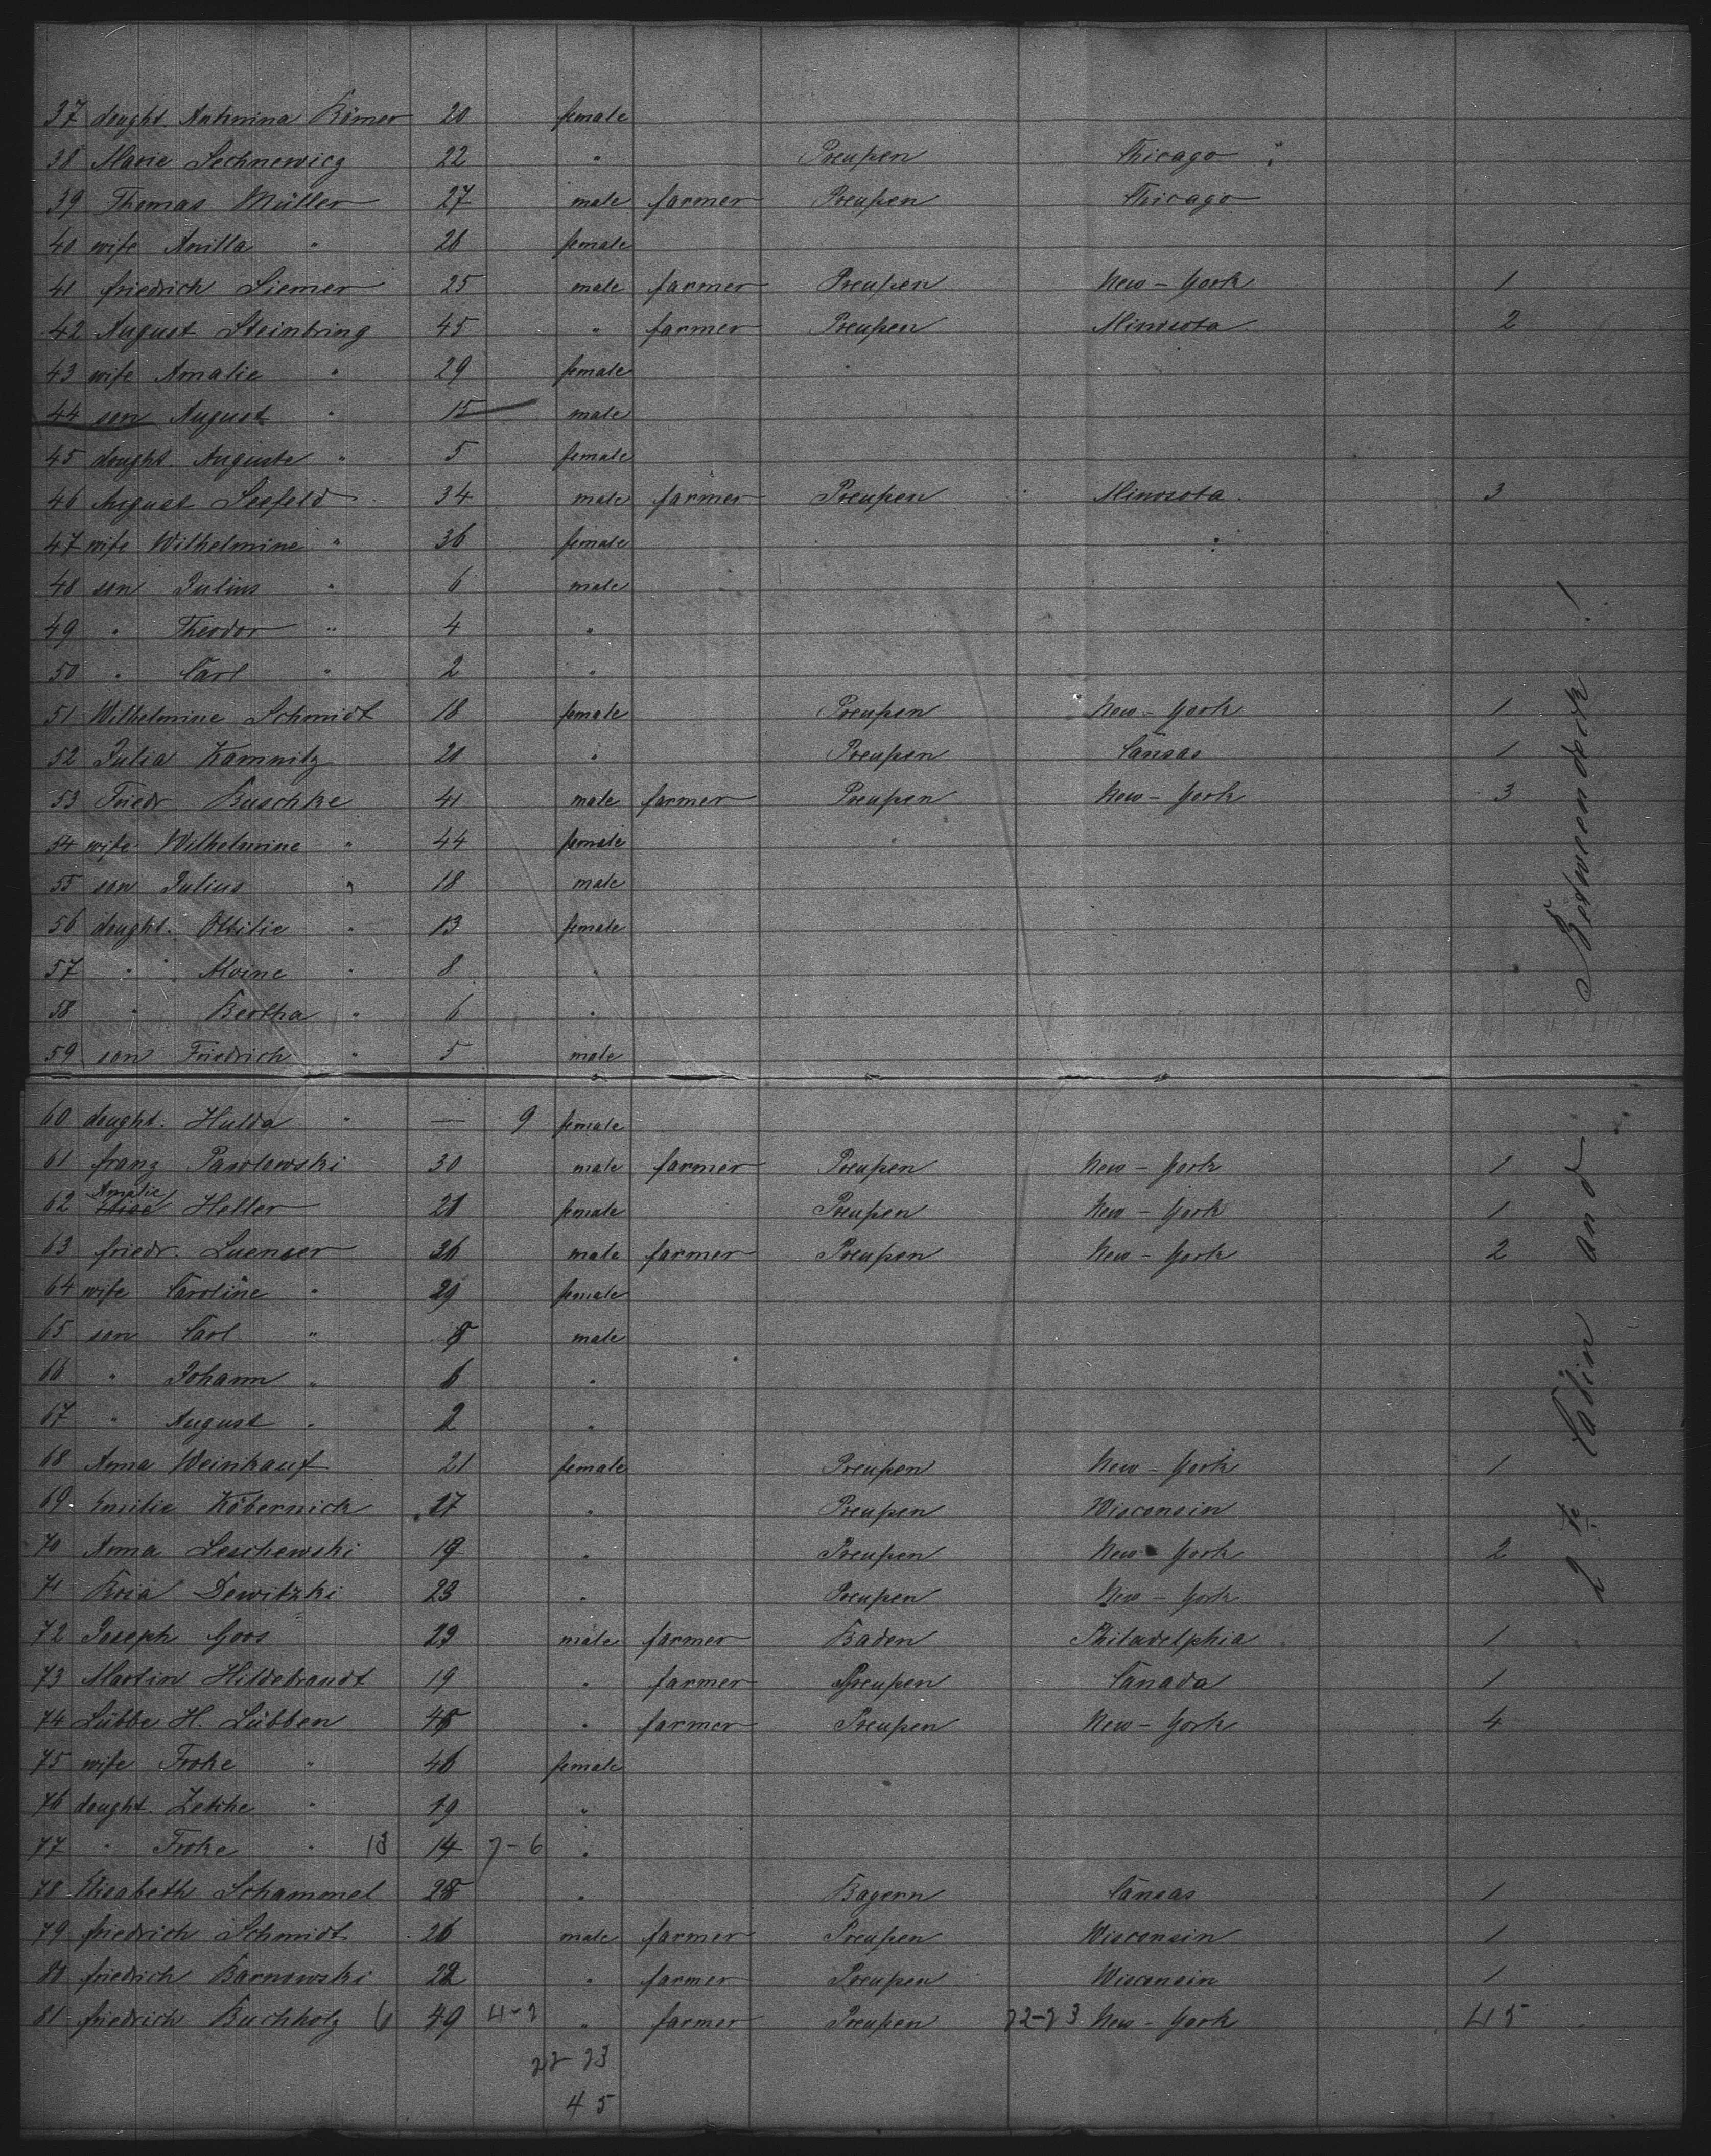 37 dought. Antonina Römer 20 female
38 Marie Sechnewicz 22 " Preußen Chicago
39 Thomas Müller 27 male farmer Preußen Chicago
40 wife Anilla " 26 female
41 friedrich Siemer 25 male farmer Preußen New-York 1
42 August Steinbring 45 " farmer Preußen Minesota 2
43 wife Amalie " 29 female
44 son August " 15 male
45 dought. Auguste " 5 female
46 August Seefeld 34 male farmer Preußen Minesota 3
47 wife Wilhelmine " 36 female
48 son Julius " 6 male
49 " Theodor " 4 "
50 " Carl " 2 "
51 Wilhelmine Schmidt 18 female Preußen New-York 1
52 Julia Kamnitz 20 " Preußen Cansas 1
53 Friedr Buschke 41 male farmer Preußen New-York 3
54 wife Wilhelmine " 44 female
55 son Julius " 18 male
56 dought. Ottilie " 13 female
57 " Alvine " 8 "
58 " Bertha " 6 "
59 son Friedrich " 5 male
60 dought. Hulda " — 9 female
61 franz Pawlowski 30 male farmer Preußen New-York 1
62 Amalie Heller 21 female Preußen New-York 1
63 friedr. Luenser 36 male farmer Preußen New-York 2
64 wife Caroline " 29 female
65 son Carl " 8 male
66 " Johann " 6 "
67 " August " 2 "
68 Anna Weinkauf 21 female Preußen New-York 1
69 Emilie Köbernick 17 " Preußen Wisconsin
70 Anna Leschewski 19 " Preußen New-York 2
71 Dewitzki 23 " Preußen New-York
72 Joseph Goos 29 male farmer Baden Philadelphia 1
73 Martin Hildebrandt 19 " farmer Preußen Canada 1
74 Lübbe H. Lübben 45 " farmer Preußen New-York 4
75 wife Froke " 46 female
76 dought. " 19 "
77 " Froke " 13 14 7-6 "
78 Elisabeth Schammel 28 " Bayern Cansas 1
79 friedrich Schmidt 26 male farmer Preußen Wisconsin 1
80 friedrich Barnowski 22 " farmer Preußen Wisconsin 1
81 friedrich Buchholz 6 49 4-2 " farmer Preußen 22-23 New-York 45
22-23
45
2te Cabin and Betweendeck!